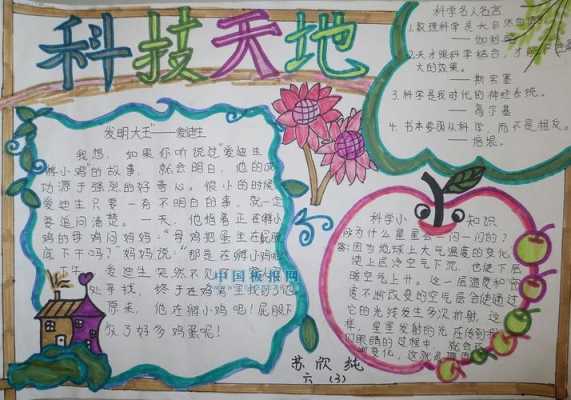 科技天地
科学名人名言
1.数理科学是大自然的语言。
——伽利略
2.天才跟科学结合，才能
大的效果。
——斯宾塞
3.科学是我时代的神经系统。
——高尔基
4.书本要围从科学，而不是相反。
——培根
发明大王"——爱迪生
我想，如果你听说过"爱迪生
孵小鸡"的故事，就会明白，他的成
功源于强烈的好奇心。很小的时候
爱迪生只要一有不明白的事，就一定
要追问清楚。一天，他指着正在孵小
鸡的母鸡问妈妈："母鸡把蛋坐在屁股
底下干吗？"妈妈说："那是在孵小鸡呢
下午，爱迪生突然不见了
处寻找，终于在鸡窝里找到了他
原来，他在孵小鸡呢！屁股下
放了好多鸡蛋呢！
中国板报网
科学小知识
问为什么星星会一闪一闪的？
答:因为地球上大气温度的变化，
使上层冷空气下沉，也使下层
暖空气上升。这一层温度和密
度不断改变的空气层会使通过
它的光线发生多次折射，这
样，星星发射的光在传到我
们眼睛的过程中，就会
变化，这就
苏欣纯
六（3）